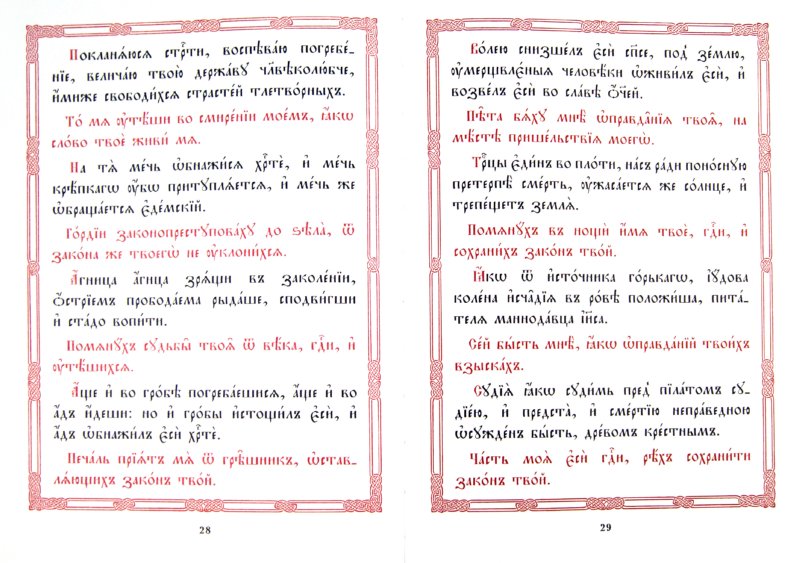 Покланѧ́юсѧ стрⷭ҇ти, воспѣва́ю погребе́-
нїе, велича́ю твою̀ держа́ву чл҃вѣколю́бче,
и҆́миже свободи́хсѧ страсте́й тлетво́рныхъ.
То́ мѧ ᲂу҆тѣ́ши во смире́нїи мое́мъ, ꙗ҆́кѡ
сло́во твоѐ живи́ мѧ.
На тѧ̀ ме́чь ѡ҆бнажи́сѧ хрⷭ҇тѐ, и҆ ме́чь
крѣ́пкагѡ ᲂу҆́бѡ притуплѧ́етсѧ, и҆ ме́чь же
ѡ҆браща́етсѧ є҆де́мскїй.
Го́рдїи законопрестꙋпова́хꙋ до ѕѣла̀, ѿ
зако́на же твоегѡ̀ не ᲂу҆клони́хсѧ.
А҆́гница а҆́гнца зрѧ́щи въ заколе́нїи,
ѻ҆стрїе́мъ пробода́ема рыда́ше, сподви́гши
и҆ ста́до вопи́ти.
Помѧнꙋ́хъ сꙋдьбы̑ твоѧ̑ ѿ вѣ́ка, гдⷭ҇и, и҆
ᲂу҆тѣ́шихсѧ.
А҆́ще и҆ во гро́бѣ погреба́ешисѧ, а҆́ще и҆ во
а҆́дъ и҆́деши: но и҆ гро́бы и҆стощи́лъ є҆сѝ, и҆
а҆́дъ ѡ҆бнажи́лъ є҆сѝ хрⷭ҇тѐ.
Печа́ль прїѧ́тъ мѧ̀ ѿ грѣ̑шникъ, ѡ҆ставлѧ-
лѧ́ющихъ зако́нъ тво́й.
28
Во́лею снизше́лъ є҆сѝ сп҃се, под̾ зе́млю,
ᲂу҆мерщвлє́ныѧ человѣ́ки ѡ҆живи́лъ є҆сѝ, и҆
возве́лъ є҆сѝ во сла́вѣ ѻ҆́ч҃ей.
Пѣ̑та бѧ́хꙋ мнѣ̀ ѡ҆правда̑нїѧ твоѧ̑, на
мѣ́стѣ прише́льствїѧ моегѡ̀.
Трⷪ҇цы є҆ди́нъ во пло́ти, на́съ ра́ди поно́снꙋю
претерпѣ̀ сме́рть, ᲂу҆жаса́етсѧ же со́лнце, и҆
трепе́щетъ землѧ̀.
Помѧнꙋ́хъ въ нощѝ и҆́мѧ твоѐ, гдⷭ҇и, и҆
сохрани́хъ зако́нъ тво́й.
Ꙗ҆́кѡ ѿ и҆сто́чника го́рькагѡ, і҆ꙋ́дова
колѣ́на и҆сча̑дїѧ въ ро́вѣ положи́ша, пита́-
телѧ маннода́вца і҆и҃са.
Се́й бы́сть мнѣ̀, ꙗ҆́кѡ ѡ҆правда́нїй твои́хъ
взыска́хъ.
Сꙋдїѧ̀ ꙗ҆́кѡ сꙋди́мь пред̾ пїла́томъ сꙋ-
дїе́ю, и҆ предста̀, и҆ сме́ртїю непра́ведною
ѡ҆сꙋжде́нъ бы́сть, дре́вомъ кре́стнымъ.
Ча́сть моѧ̀ є҆сѝ гдⷭ҇и, рѣ́хъ сохрани́ти
зако́нъ тво́й.
29